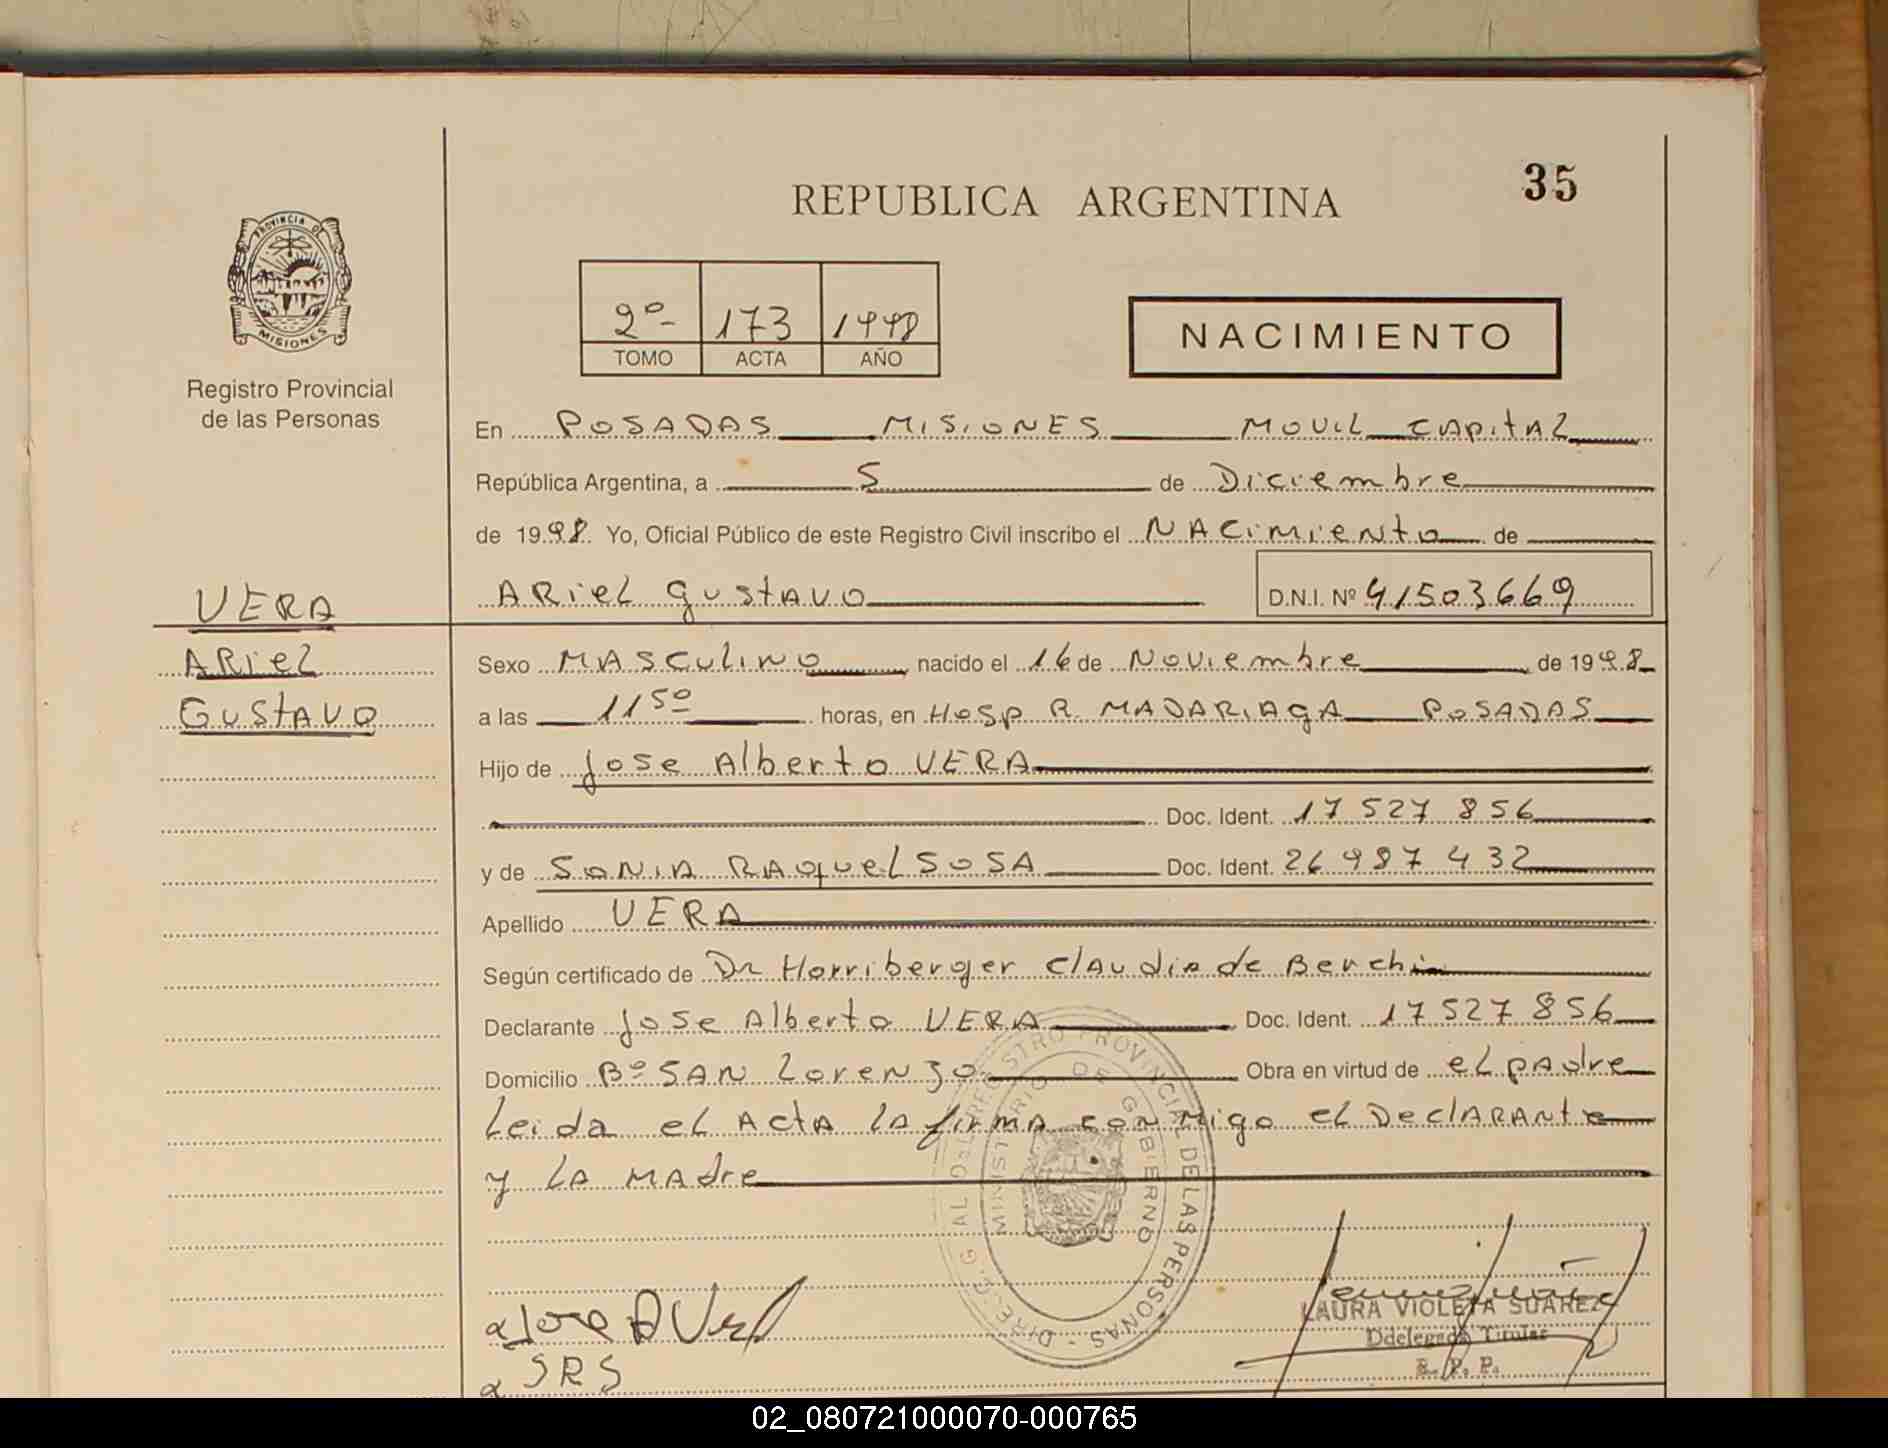 35
REPUBLICA ARGENTINA
PROVINCIA DE
MISIONES
Registro Provincial
de las Personas
2º- 173 1998
TOMO ACTA AÑO
NACIMIENTO
En POSADAS MISIONES MOVIL CAPITAL
República Argentina, a 5 de Diciembre
de 1998. Yo, Oficial Público de este Registro Civil inscribo el NACimiento de
ARiel GustAVO D.N.I. Nº 41503669
VERA
ARiel
GUStAVO
Sexo MASCULINO nacido el 16 de Noviembre de 1998
a las 11 50 horas, en HOSP R. MADARIAGA POSADAS
Hijo de Jose Alberto VERA
Doc. Ident. 17 527 856
y de SONIA RAquel SOSA Doc. Ident. 26 987 432
Apellido VERA
Según certificado de Dr Horriberger Claudia de
Declarante Jose Alberto VERA Doc. Ident. 17 527 856
Domicilio Bº SAN Lorenzo Obra en virtud de el pAdre
Leida el ActA la firma conmigo el DeclARAnte
y LA MAdre
DIREC. GRAL DEL REGISTRO PROVINCIAL DE LAS PERSONAS -
MINISTERIO DE GOBIERNO
Jose A Vera
SRS
LAURA VIOLETA SUAREZ
Ddelegada Titular
R. P. P.
02_080721000070-000765